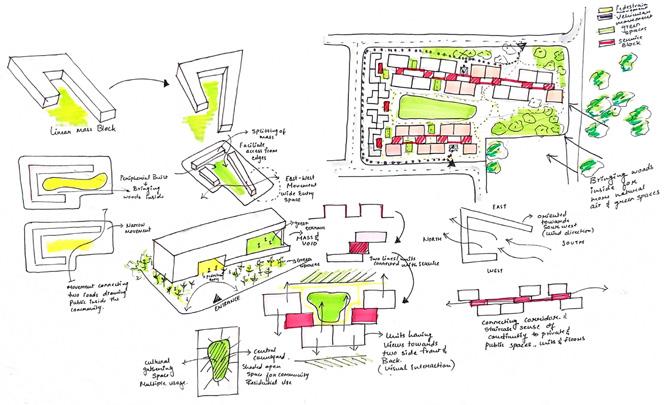 Pedestrian
movement
vehicular
movement
green
spaces
service
Block
Linear mass Block
Splitting of
mass
Facilitate
access from
edges
East-West
Movement
wide Entry
space
Peripherial Built
+
Bringing
woods inside
Narrow
movement
Movement connecting
two roads drawing
Public inside the
community.
green
MASS &
VOID
ENTRANCE
Two linear units
connected with service
EAST
NORTH
WEST
SOUTH
oriented
towards
South west
(Wind direction)
Bringing woods
inside for
more natural
air & green spaces
connecting corridor &
staircase sense of
continuity to private &
Public spaces, units & floors
Units having
views towards
two side front &
Back.
(Visual Interaction)
cultural
gathering
space
Multiple usage.
central
courtyard.
shaded open
space for community
Residential use